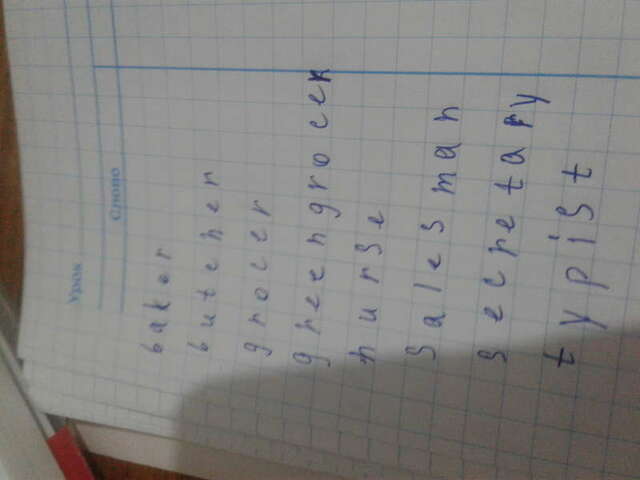 Урок
Слово
baker
butcher
grocer
greengrocer
nurse
salesman
secretary
typist